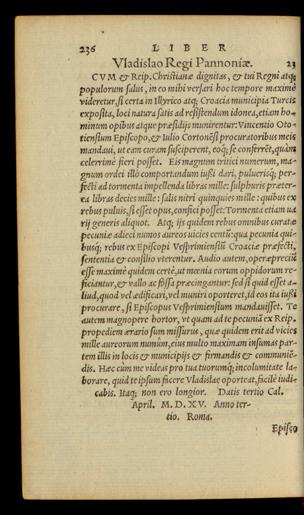 236 LIBER
Vladislao Regi Pannoniæ. 23
CVM & Reip. Christianæ dignitas, & tui Regni atq;
populorum salus, in eo mihi versari hoc tempore maximè
videretur, si certa in Illyrico atq; Croacia municipia Turcis
exposita, loci natura satis ad resistendum idonea, etiam ho-
minum opibus atque præsidijs munirentur: Vincentio Oto-
tiensium Episcopo, & Iulio Cortonesi procuratoribus meis
mandaui, ut eam curam susciperent, eoq; se conferrēt, quàm
celerrimè fieri posset. Eis magnum tritici numerum, ma-
gnum ordei illò comportandum iussi dari, pulueriscq; per-
fecti ad tormenta impellenda libras mille: sulphuris præter-
ea libras decies mille: salis nitri quinquies mille: quibus ex
rebus puluis, si esset opus, confici posset: Tormenta etiam ua
rij generis aliquot. Atq; ijs quidem rebus omnibus curatæ
pecuniæ adieci numos aureos uicies centū: qua pecunia qui-
busq; rebus ex Episcopi Vesprimiensiū Croaciæ præfecti,
sententia & consilio vterentur. Audio autem, operæpreciū
esse maximè quidem certè, ut mœnia eorum oppidorum re-
ficiantur, & vallo ac fossa præcingantur: sed si quid esset a-
liud, quod vel ædificari, vel muniri oporteret, id eos ita iussi
procurare, si Episcopus Vesprimiensium mandauisset. Te
autem magnopere hortor, vt quam ad te pecuniā ex Reip.
propediem ærario sum missurus, quæ quidem erit ad vicies
mille aureorum numūm, eius multo maximam insumas par-
tem illis in locis & municipijs & firmandis & communiē-
dis. Hæc cùm me videas pro tua tuorumq; incolumitate la-
borare, quid te ipsum facere Vladislae oporteat, facilè iudi-
cabis. Itaq; non ero longior. Datis tertio Cal.
April. M. D. XV. Anno ter-
tio. Roma.
Episco